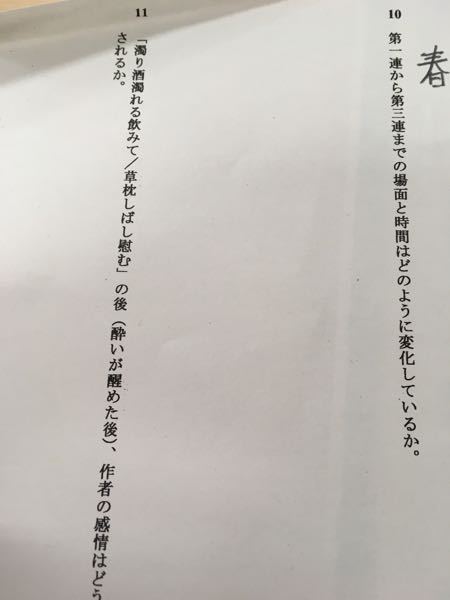 春
10 第一連から第三連までの場面と時間はどのように変化しているか。
11 「濁り酒濁れる飲みて／草枕しばし慰む」の後（酔いが醒めた後）、作者の感情はどう
されるか。